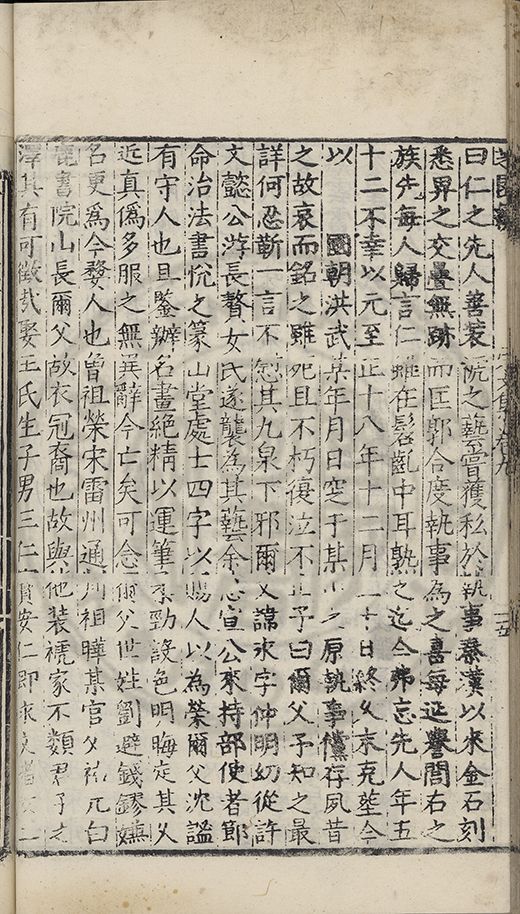 曰仁之先人善裝褫之藝嘗獲私於執事秦漢以來金石刻
悉畀之交疊無跡而匡郭合度執事為之喜每延譽閭右之
族先每人歸言仁雖在髫齓中耳熟之迄今弗忘先人年五
十二不幸以元至正十八年十二月二十日終久未克塟今
以　國朝洪武某年月日窆于某山之原執事儻存夙昔
之故哀而銘之雖死且不朽復泣不止予曰爾父予知之最
詳何忍靳一言不慰其九泉下邪爾父諱永字仲明幼從許
文懿公游長贅女氏遂襲為其藝余忠宣公來持部使者節
命治法書悅之篆山堂處士四字以賜人以為榮爾父沈謐
有守人也且鑒辦名畫絕精以運筆柔勁設色明晦定其父
近真偽多服之無異辭今亡矣可念爾父世姓劉避錢鏐嫌
名更為今婺人也曾祖榮宋雷州通判祖曄某官父元白
鹿書院山長爾父故衣冠裔也故與他裝褫家不類君子之
澤其有可徵哉娶王氏生子男三仁安仁即求文者女二